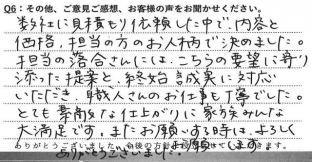 Q6：その他、ご意見ご感想、お客様の声をお聞かせください。
数社に見積もり依頼した中で、内容と
価格、担当の方のお人柄で決めました。
担当の落合さんには、こちらの要望に寄り
添った提案と、終始誠実に対応
いただき、職人さんのお仕事も丁寧でした。
とても素敵な仕上がりに家族みんな
大満足です。またお願いする時は、よろしく
ありがとうございました。今後の方針
お願いします
ありがとうございました。